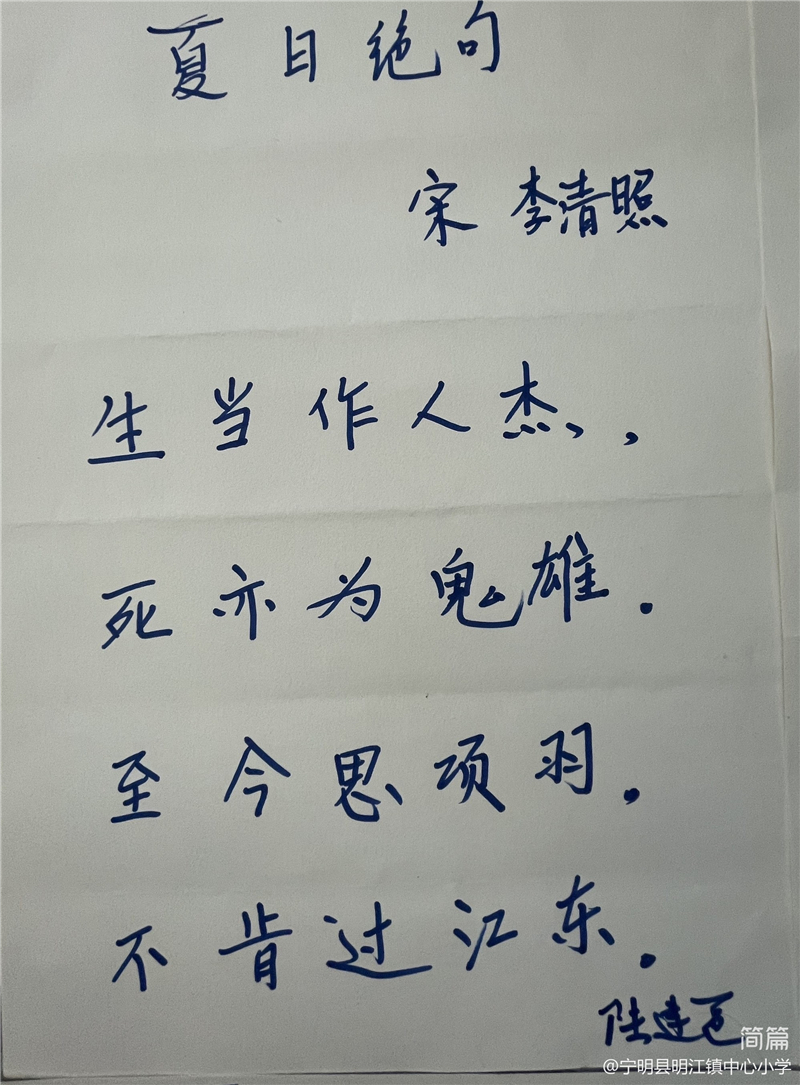 夏日绝句
宋 李清照
生当作人杰，
死亦为鬼雄.
至今思项羽,
不肯过江东.
简篇
@宁明县明江镇中心小学